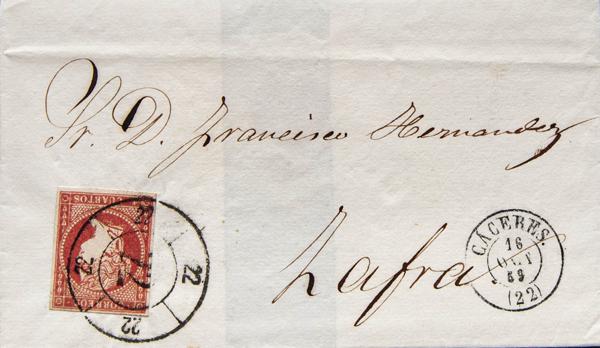 Sr. D. Francisco Hernandez
Zafra
CUARTOS
CORREOS
22
22
22
22
CÁCERES.
16
OCT
59
(22)